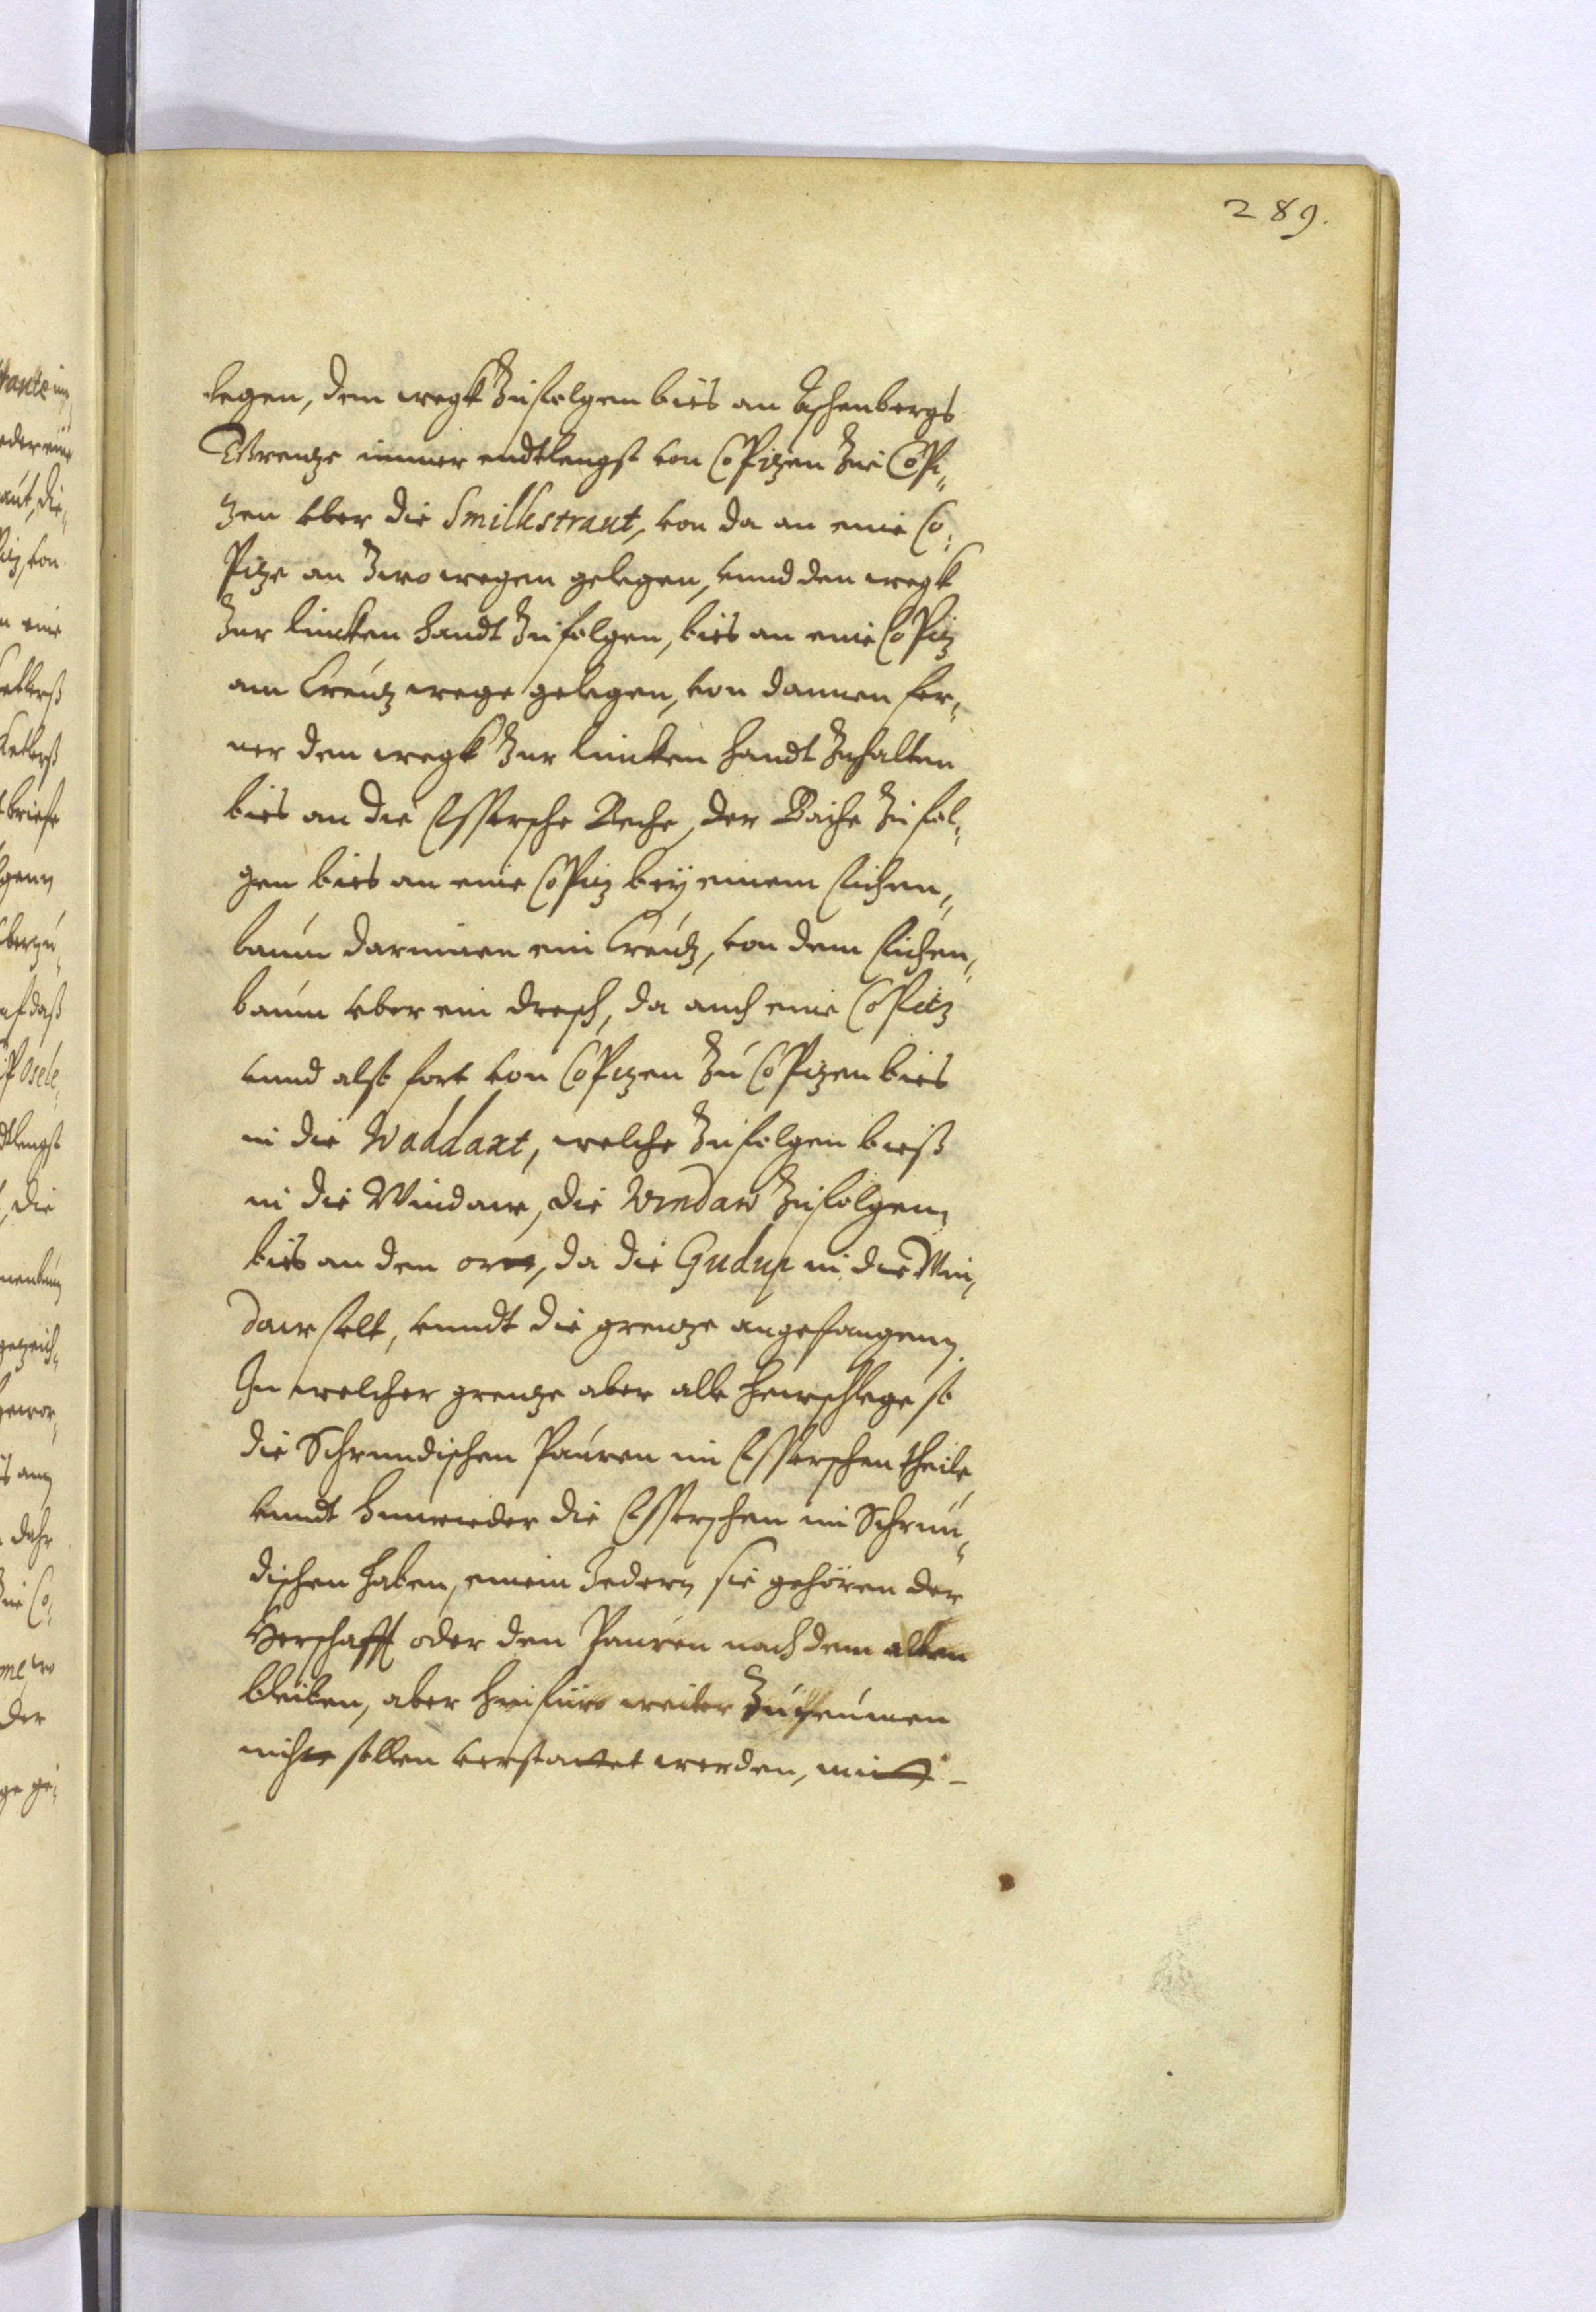 289.
legen, dem wegk zu folgen bies an Aschenbergs
Grentze immer endtlengst von Copitzen zue Copi„
tzen vber die Smilkstraut, von da an eine Co„
pitze an zwo wegen gelegen, vnnd den wegk
zur lincken handt zu folgen, bies an eine Copitz
am Creutz wege gelegen, von dannen fer„
ner dem wegk zur lincken handt zuhalten
bies an die Essersche Beche, der Bache zu fol„
gen bies an eine Copitz bey einem Eichen„
baum darinnen ein Creutz, von dem Eichen„
baum vber ein dresch, da auch eine Copitz
vnnd also fort von Copitzen zu Copitzen bies
in die Waddaxt, welche zu folgen bieß
in die Windaw, die Windaw zu folgen
bies an dem ort, da die Gudup in die Win„
daw felt, vnndt die grentze angefangen.
In welcher grentze aber alle Hewschlege so
die Schrundischen Pauren im Esserschen theile
vnndt hinwieder die Esserschen im Schrun„
dischen haben, einem Jedern sie gehören der
Herschafft oder den Pauren nach dem alten
bleiben, aber hinfüro weiter zu reumen
nicht sollen verstattet werden, mitt